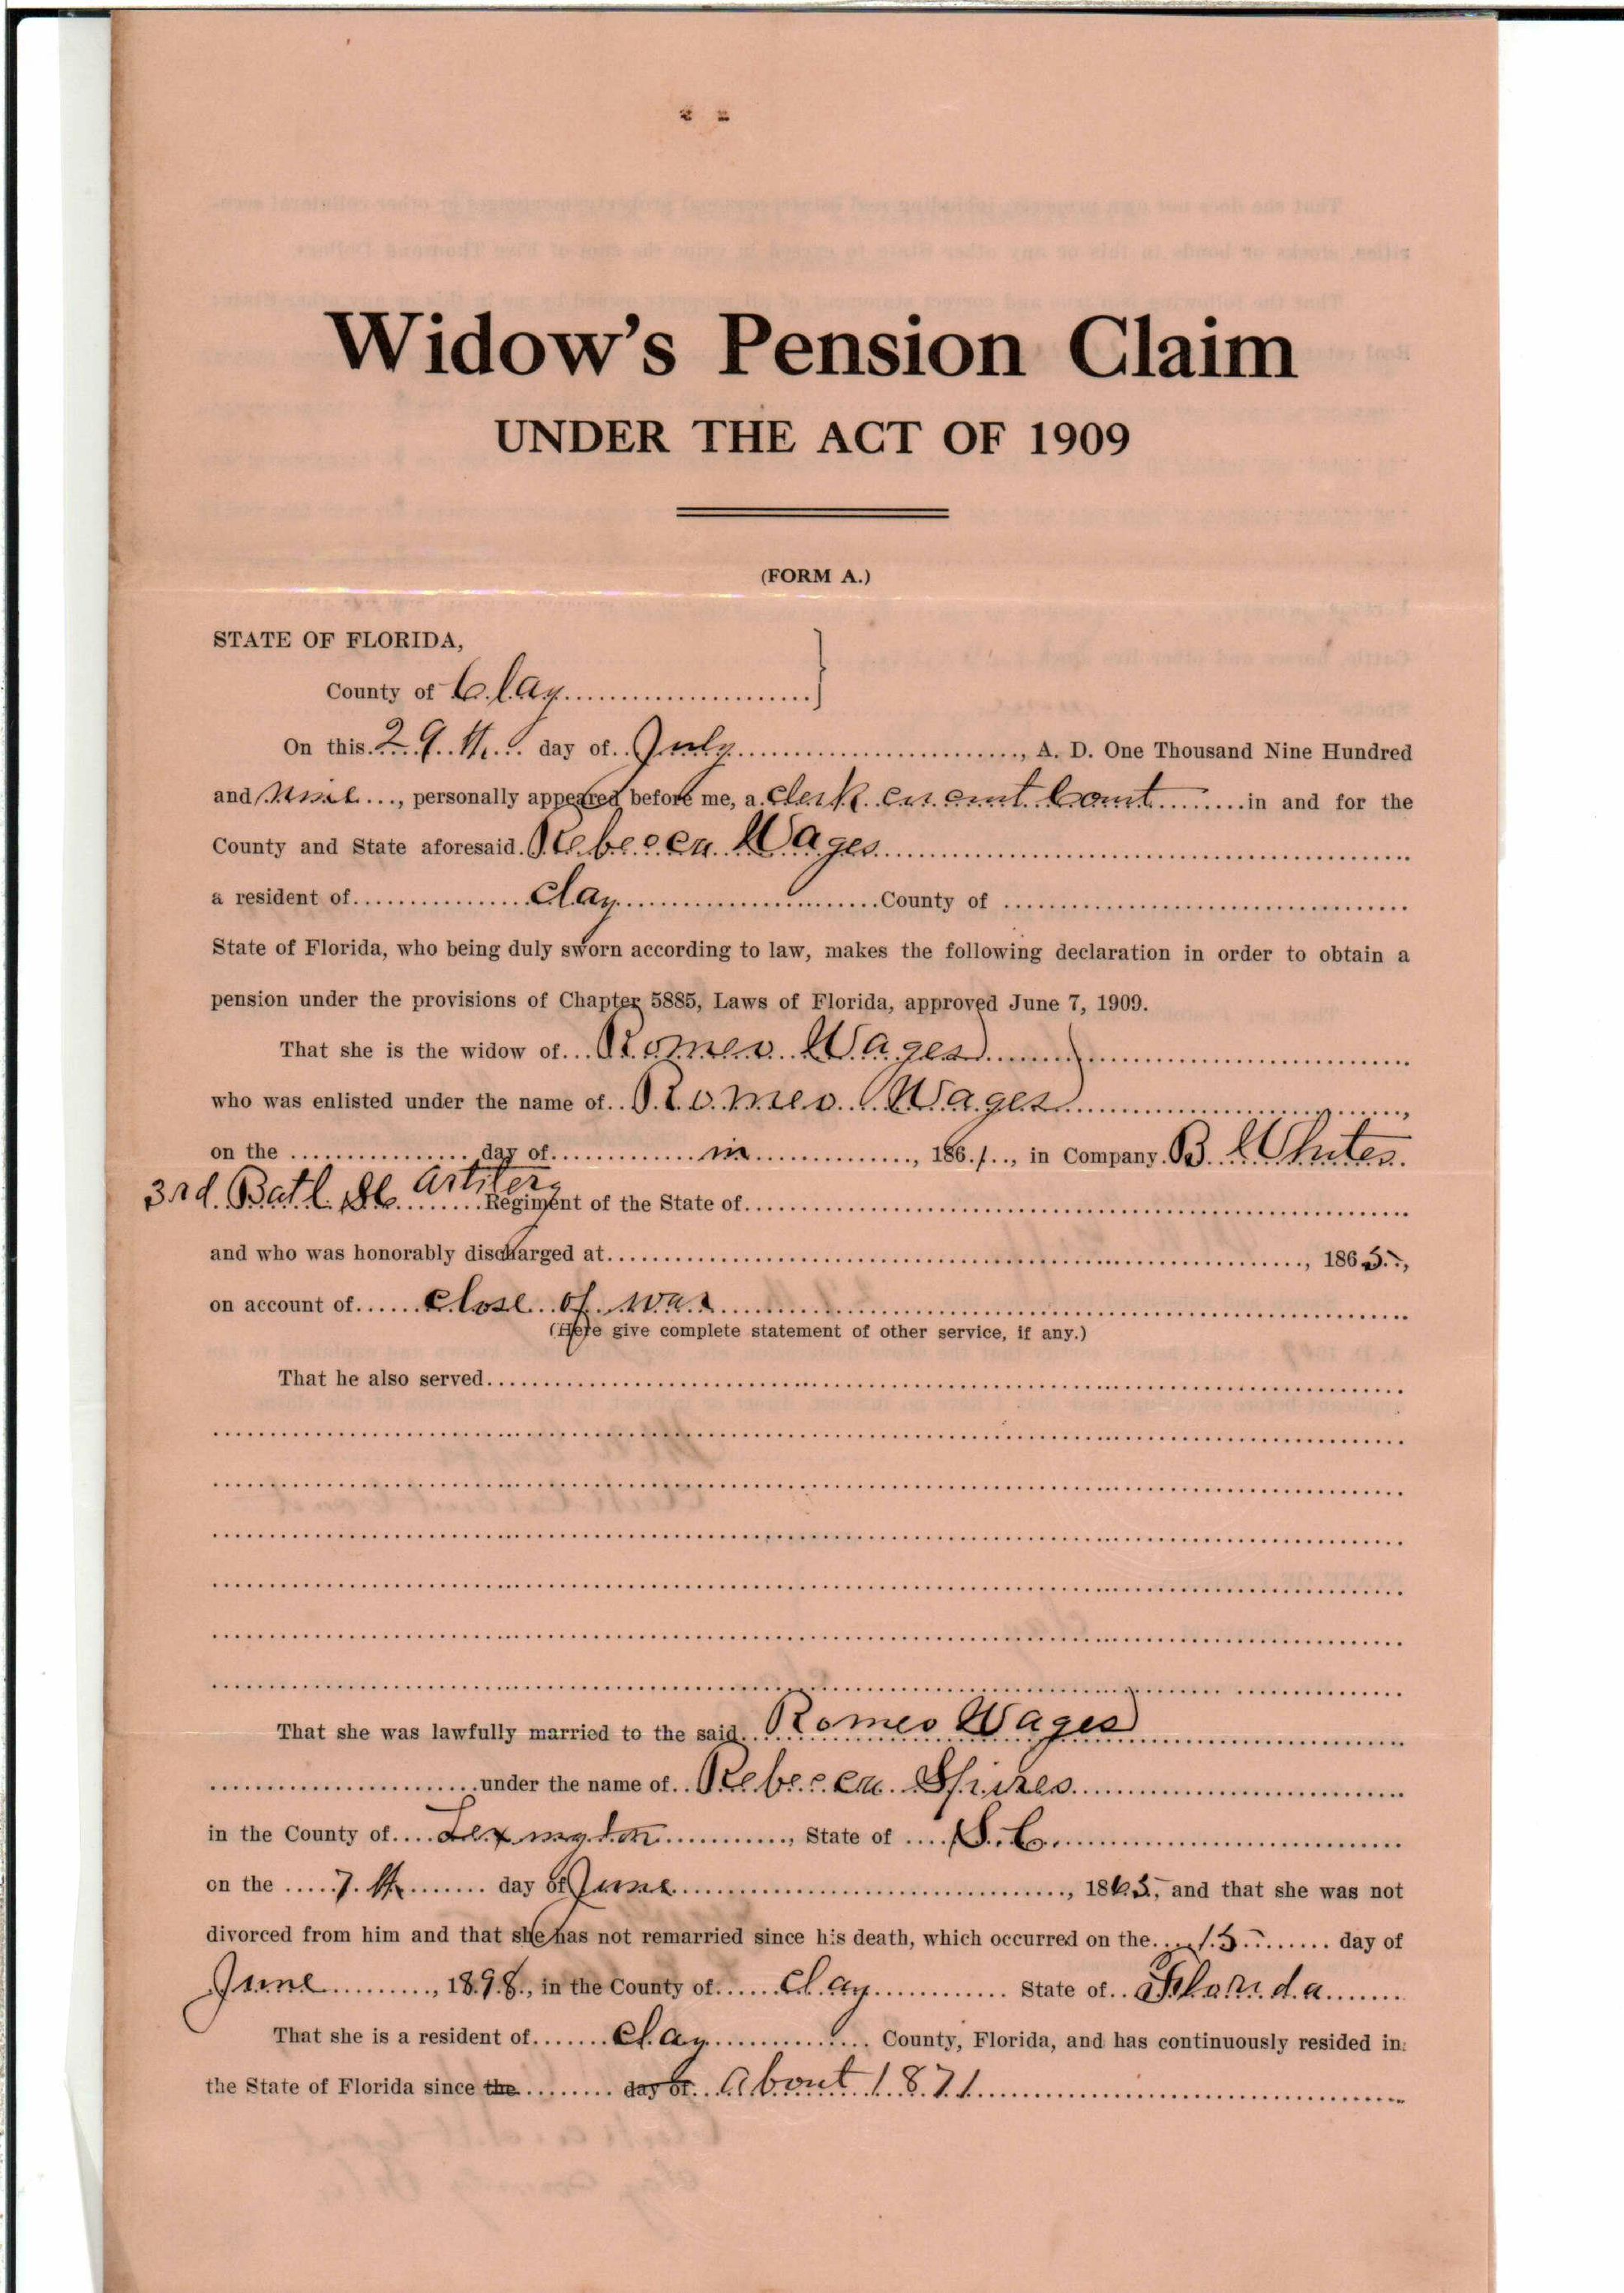 Widow's Pension Claim
UNDER THE ACT OF 1909
(FORM A.)
STATE OF FLORIDA,
County of Clay
On this 29th day of July, A. D. One Thousand Nine Hundred
and nine, personally appeared before me, a clerk circuit Court in and for the
County and State aforesaid Rebecca Wages
a resident of Clay County of
State of Florida, who being duly sworn according to law, makes the following declaration in order to obtain a
pension under the provisions of Chapter 5885, Laws of Florida, approved June 7, 1909.
That she is the widow of Romeo Wages
who was enlisted under the name of Romeo Wages,
on the day of in, 1861, in Company B Whites
3rd Batl SC Artilery Regiment of the State of
and who was honorably discharged at, 1865,
on account of close of war
(Here give complete statement of other service, if any.)
That he also served
That she was lawfully married to the said Romeo Wages
under the name of Rebecca Spires
in the County of Lexington, State of S.C.
on the 7th day of June, 1865, and that she was not
divorced from him and that she has not remarried since his death, which occurred on the 15 day of
June, 1898, in the County of Clay State of Florida
That she is a resident of Clay County, Florida, and has continuously resided in
the State of Florida since the day of About 1871